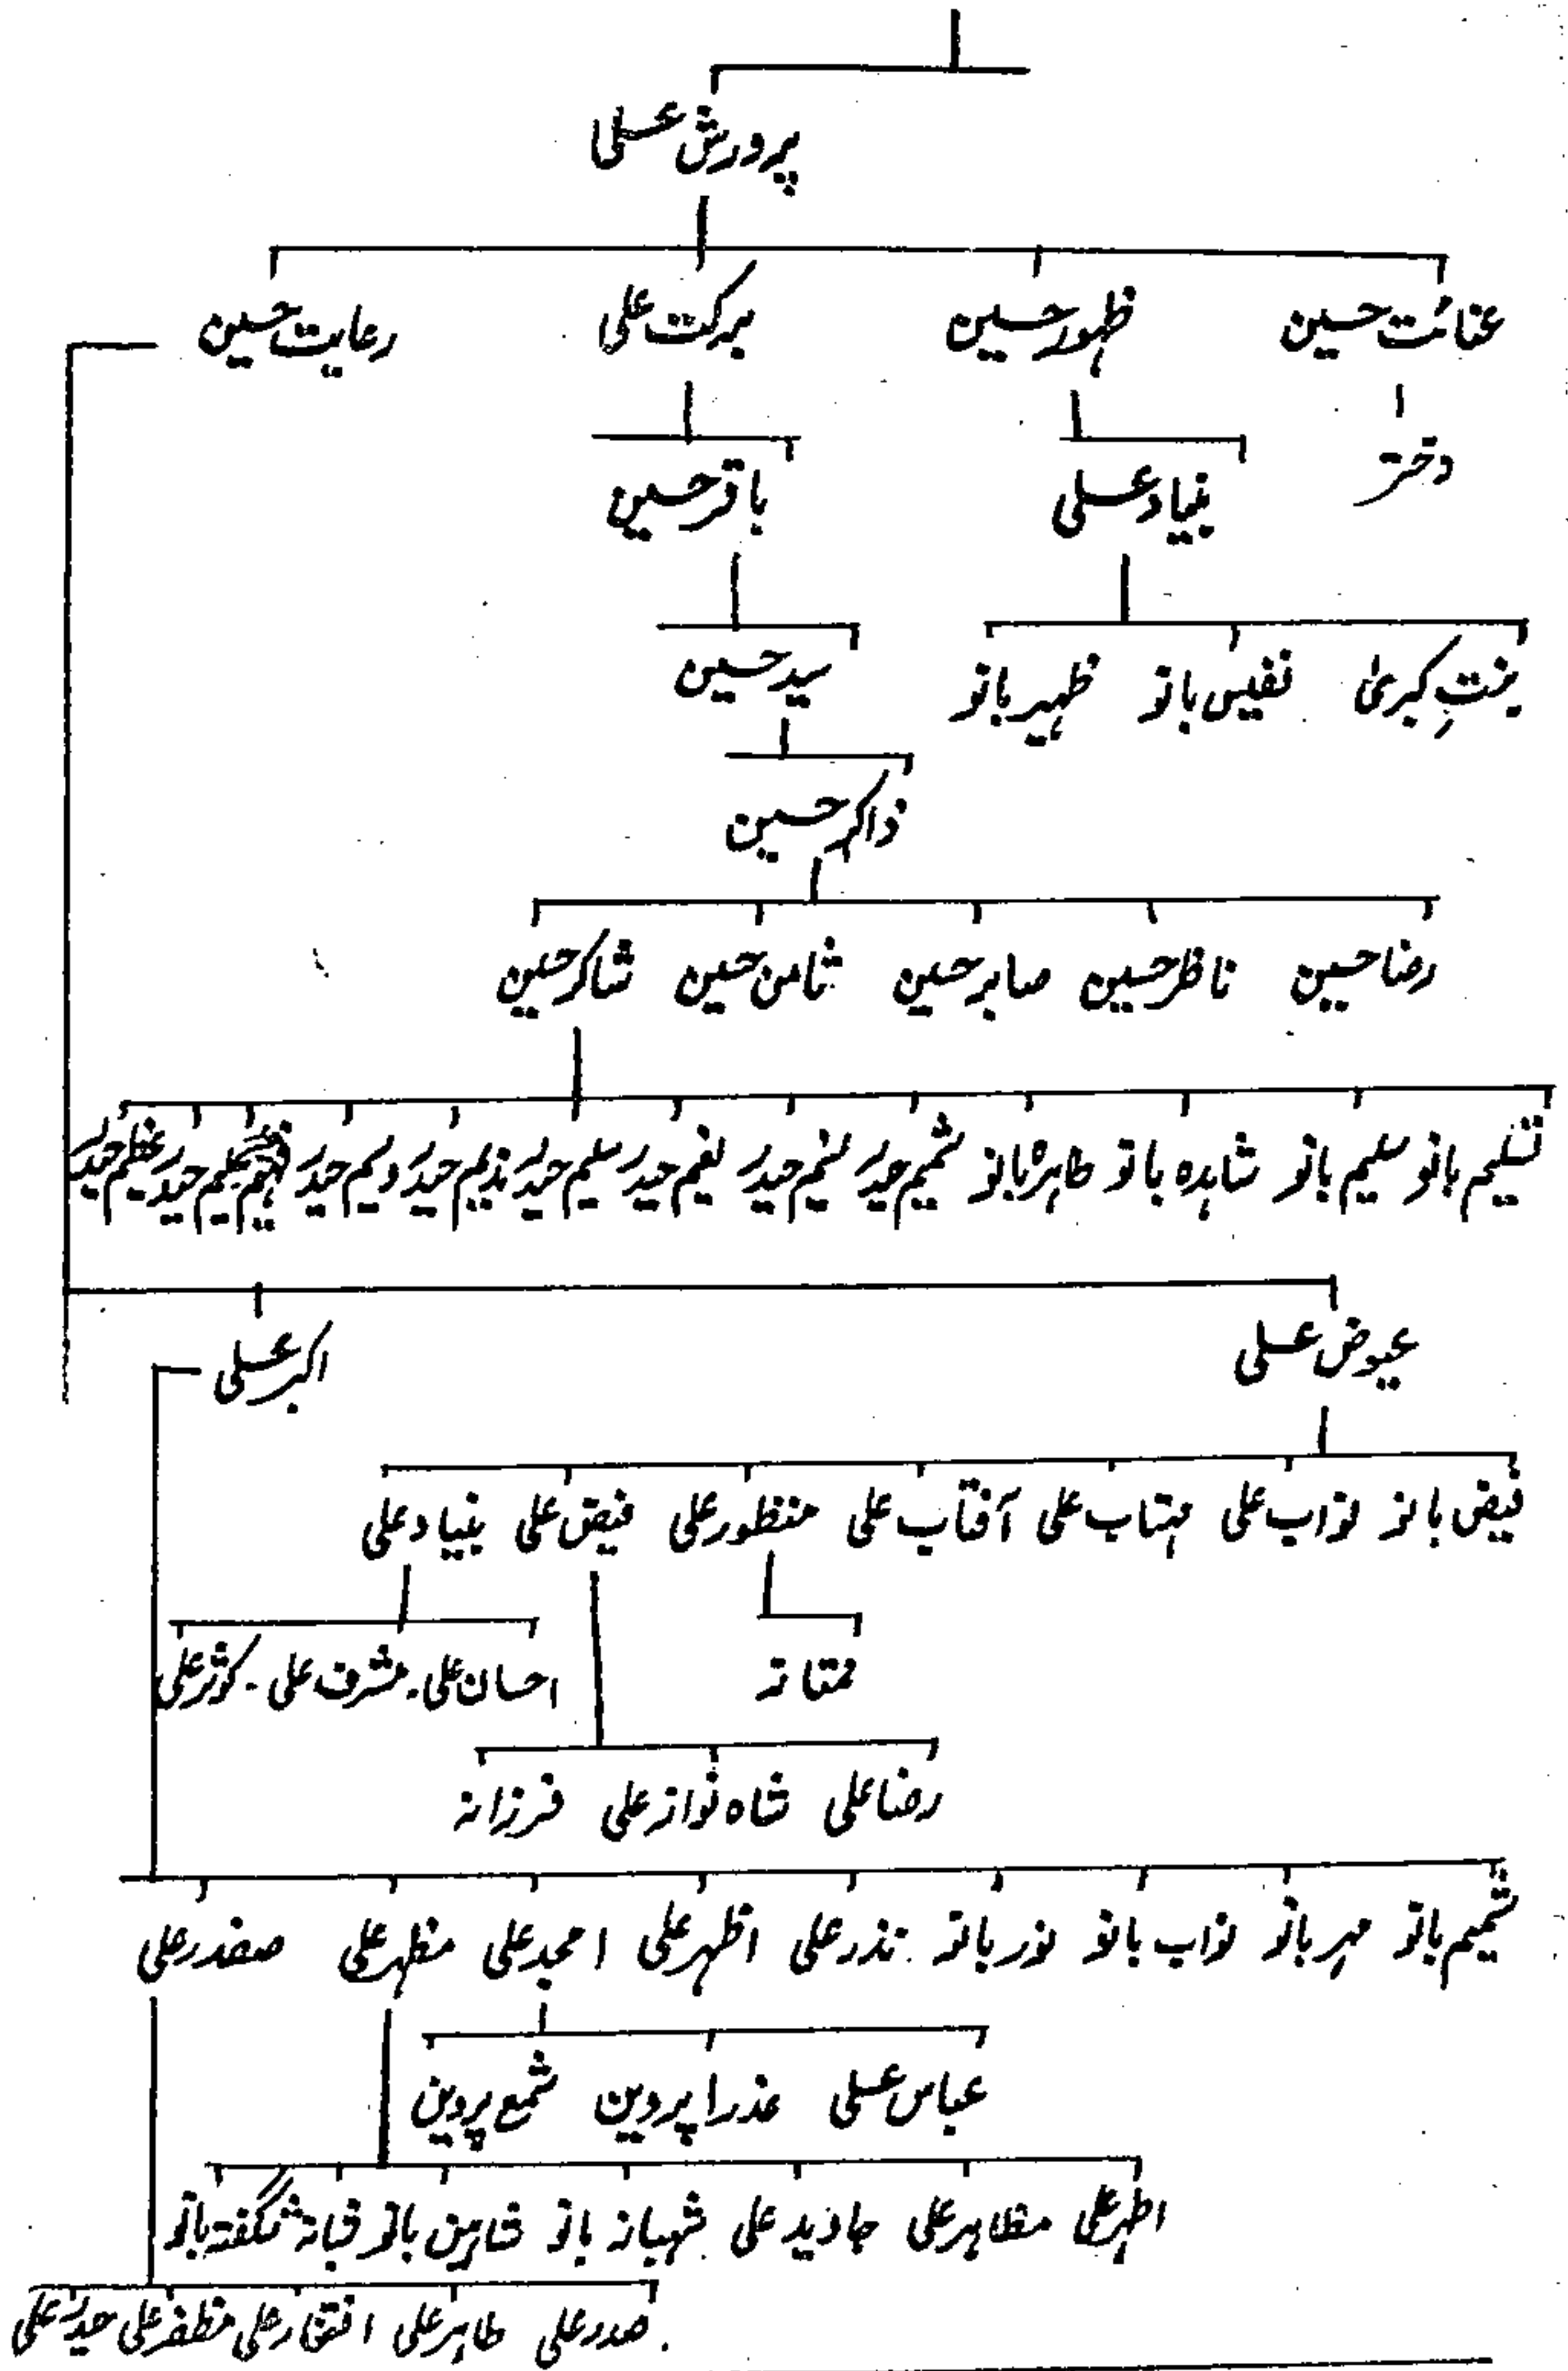 پرورش علی
عنائت حسین ظہور حسین برکت علی رعایت حسین
دختر بنیاد علی باقر حسین
بنتِ کبریٰ نفیس بانو ظہیر بانو سید حسین
ذاکر حسین
رضا حسین ناظر حسین صابر حسین ثامن حسین شاکر حسین
تسلیم بانو سلیم بانو شاہدہ بانو طاہرہ بانو شمیم حیدر نعیم حیدر سلیم حیدر ندیم حیدر وسیم حیدر فہیم عظیم حیدر
عیوض علی اکبر علی
فیض بانو نواب علی مہتاب علی آفتاب علی منظور علی فیض علی بنیاد علی
ممتاز احسان علی۔ مشرف علی۔ کوثر علی
رضا علی شاہ نواز علی فرزانہ
شمیم بانو مہر بانو نواب بانو نور بانو نذر علی اظہر علی امجد علی مظہر علی صفدر علی
عباس علی عذرا پروین شمع پروین
اطہر علی مظاہر علی جاوید علی شہباز بانو شاہین بانو شگفتہ بانو
طاہر علی افتخار علی مظفر علی حیدر علی